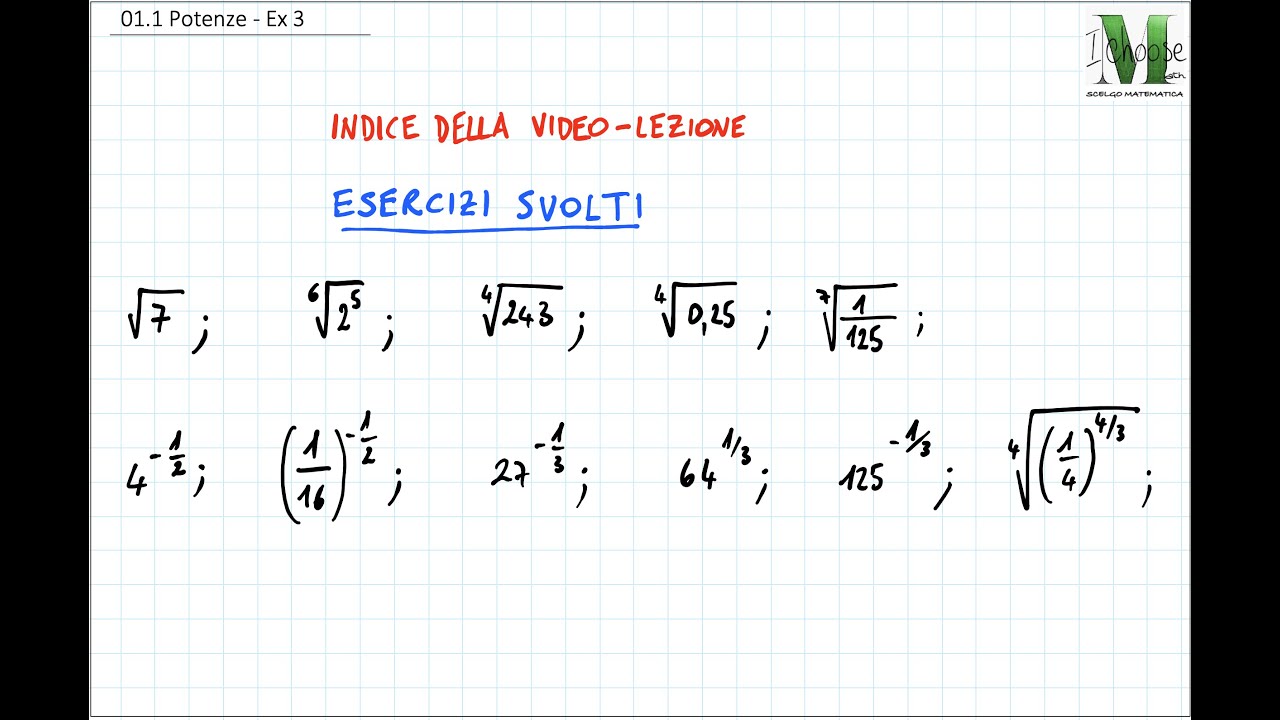 01.1 Potenze - Ex 3
I Choose Math
SCELGO MATEMATICA
INDICE DELLA VIDEO-LEZIONE
ESERCIZI SVOLTI
√7 ; ⁶√2⁵ ; ⁴√243 ; ⁴√0,25 ; ⁷√(1/125) ;
4^(-1/2) ; (1/16)^(-1/2) ; 27^(-1/3) ; 64^(1/3) ; 125^(-1/3) ; ⁴√((1/4)^(4/3)) ;